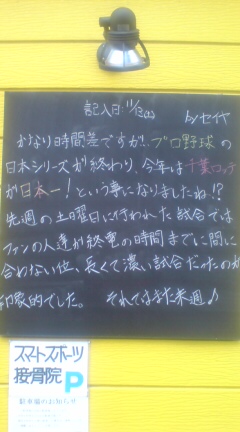 記入日:11/13(土) by セイヤ
かなり時間差ですが、プロ野球の
日本シリーズが終わり、今年は千葉ロッテ
が日本一!という事になりましたね!?
先週の土曜日に行われた試合では
ファンの人達が終電の時間までに間に
合わない位、長くて濃い試合だったのが
印象的でした。 それではまた来週♪
スマートスポーツ
接骨院 P
駐車場のお知らせ